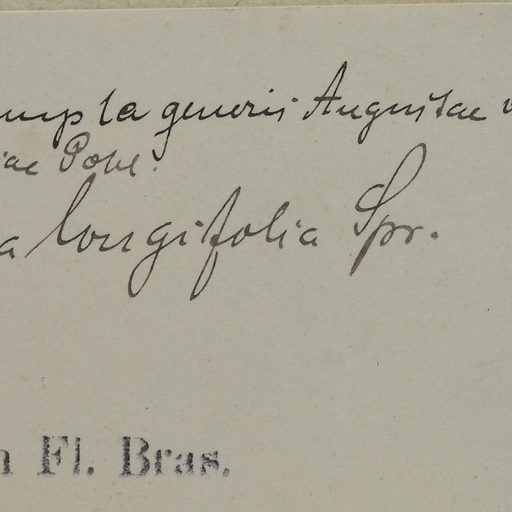 umpta generis Augustae
iae Pohl.
a longifolia Spr.
Fl. Bras.